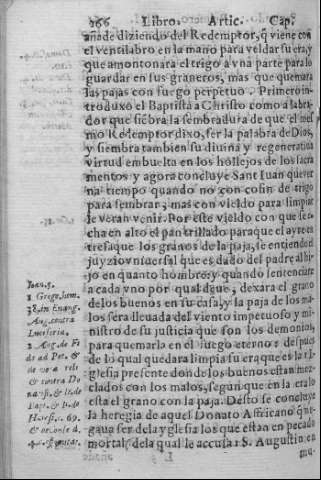 266 Libro. Artic. Cap.
añade diziendo del Redemptor, q̃ viene con
el ventilabro en la mano para veldar su era, y
que amontonara el trigo a vna parte para lo
guardar en sus graneros, mas que quemara
las pajas con fuego perpetuo. Primero in
troduxo el Baptista a Christo como a labra
dor que siẽbra la sembradura de que el mes
mo Redemptor dixo, ser la palabra de Dios,
y siembra tambien su diuina y regeneratiua
virtud embuelta en los hollejos de los sacra
mentos y agora concluye Sant Iuan que ver
na tiempo quando no con costin de trigo
para sembrar, mas con vieldo para limpiar
le veran venir. Por este vieldo con que se e-
cha en alto el pan trillado para que el ayre en
tresaque los granos de la paja, se entiende el
juyzio vniuersal que es dado del padre al hi-
jo en quanto hombre: y quando sentenciare
a cada vno por qual d que, dexara el grano
de los buenos en su casa, y la paja de los ma-
los sera lleuada del viento impetuoso y mi-
nistro de su justicia que son los demonios,
para quemarla en el fuego eterno: despues
de lo qual quedara limpia su era que es la yg-
lesia presente donde los buenos estan mez-
clados con los malos, segun que en la era lo
esta el grano con la paja. Desto se concluye
la heregia de aquel Donato Affricano que ne-
gaua ser de la yglesia los que estan en pecado
mortal, de la qual le accusa S. Augustin en
mu-
Ioan. 5.
1 Grego. hom.
Aug. contra
2 Aug. de Fi
de ad Pet. &
de vera reli
& contra Do
Bapt. & li. de
Hæres. 69.